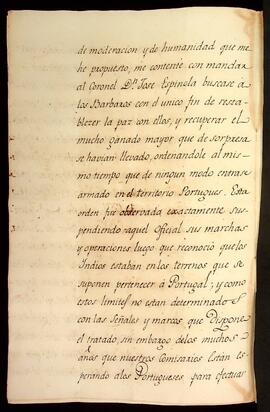 de moderacion y de humanidad que me
he propuesto, me contenté con mandar
al Coronel Dn. Jose Espinola buscase à
los Barbaros con el unico fin de resta-
blezer la paz con ellos, y recuperar el
mucho ganado mayor que de sorpresa
se havian llevado, ordenandole al mis-
mo tiempo que de ningun modo entrase
armado en el territorio Portugues. Esta
orden fué observada exactamente sus-
pendiendo aquel Oficial sus marchas
y operaciones luego que reconoció que los
Indios estaban en los terrenos que se
suponen pertenecer à Portugal; y como
estos limites no estan determinados
con las Señales y marcos que dispone
el tratado, sin embargo de los muchos
años que nuestros Comisarios estàn es-
perando a los Portugueses para efectuar